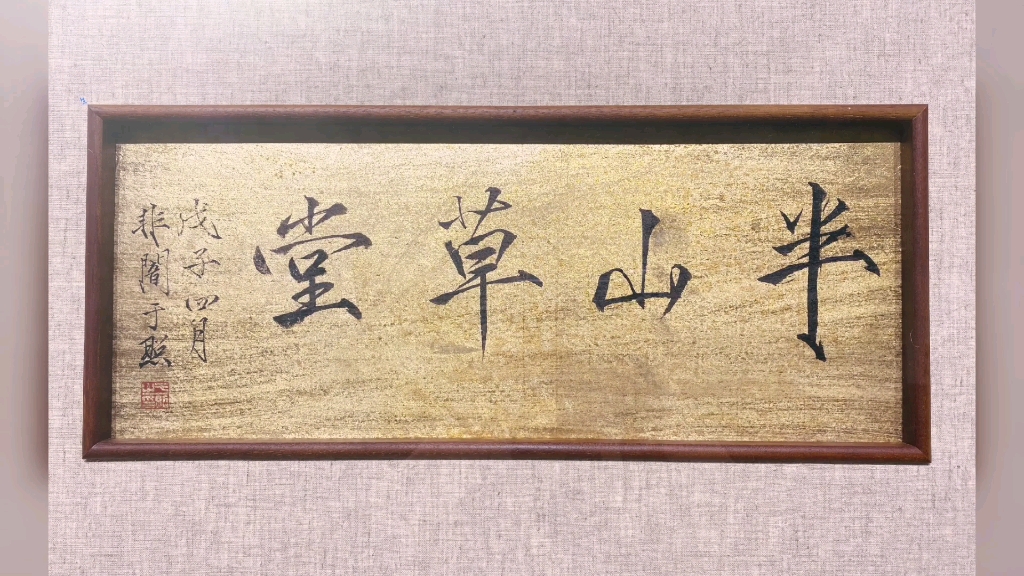 半山草堂
戊子四月
非闇于照